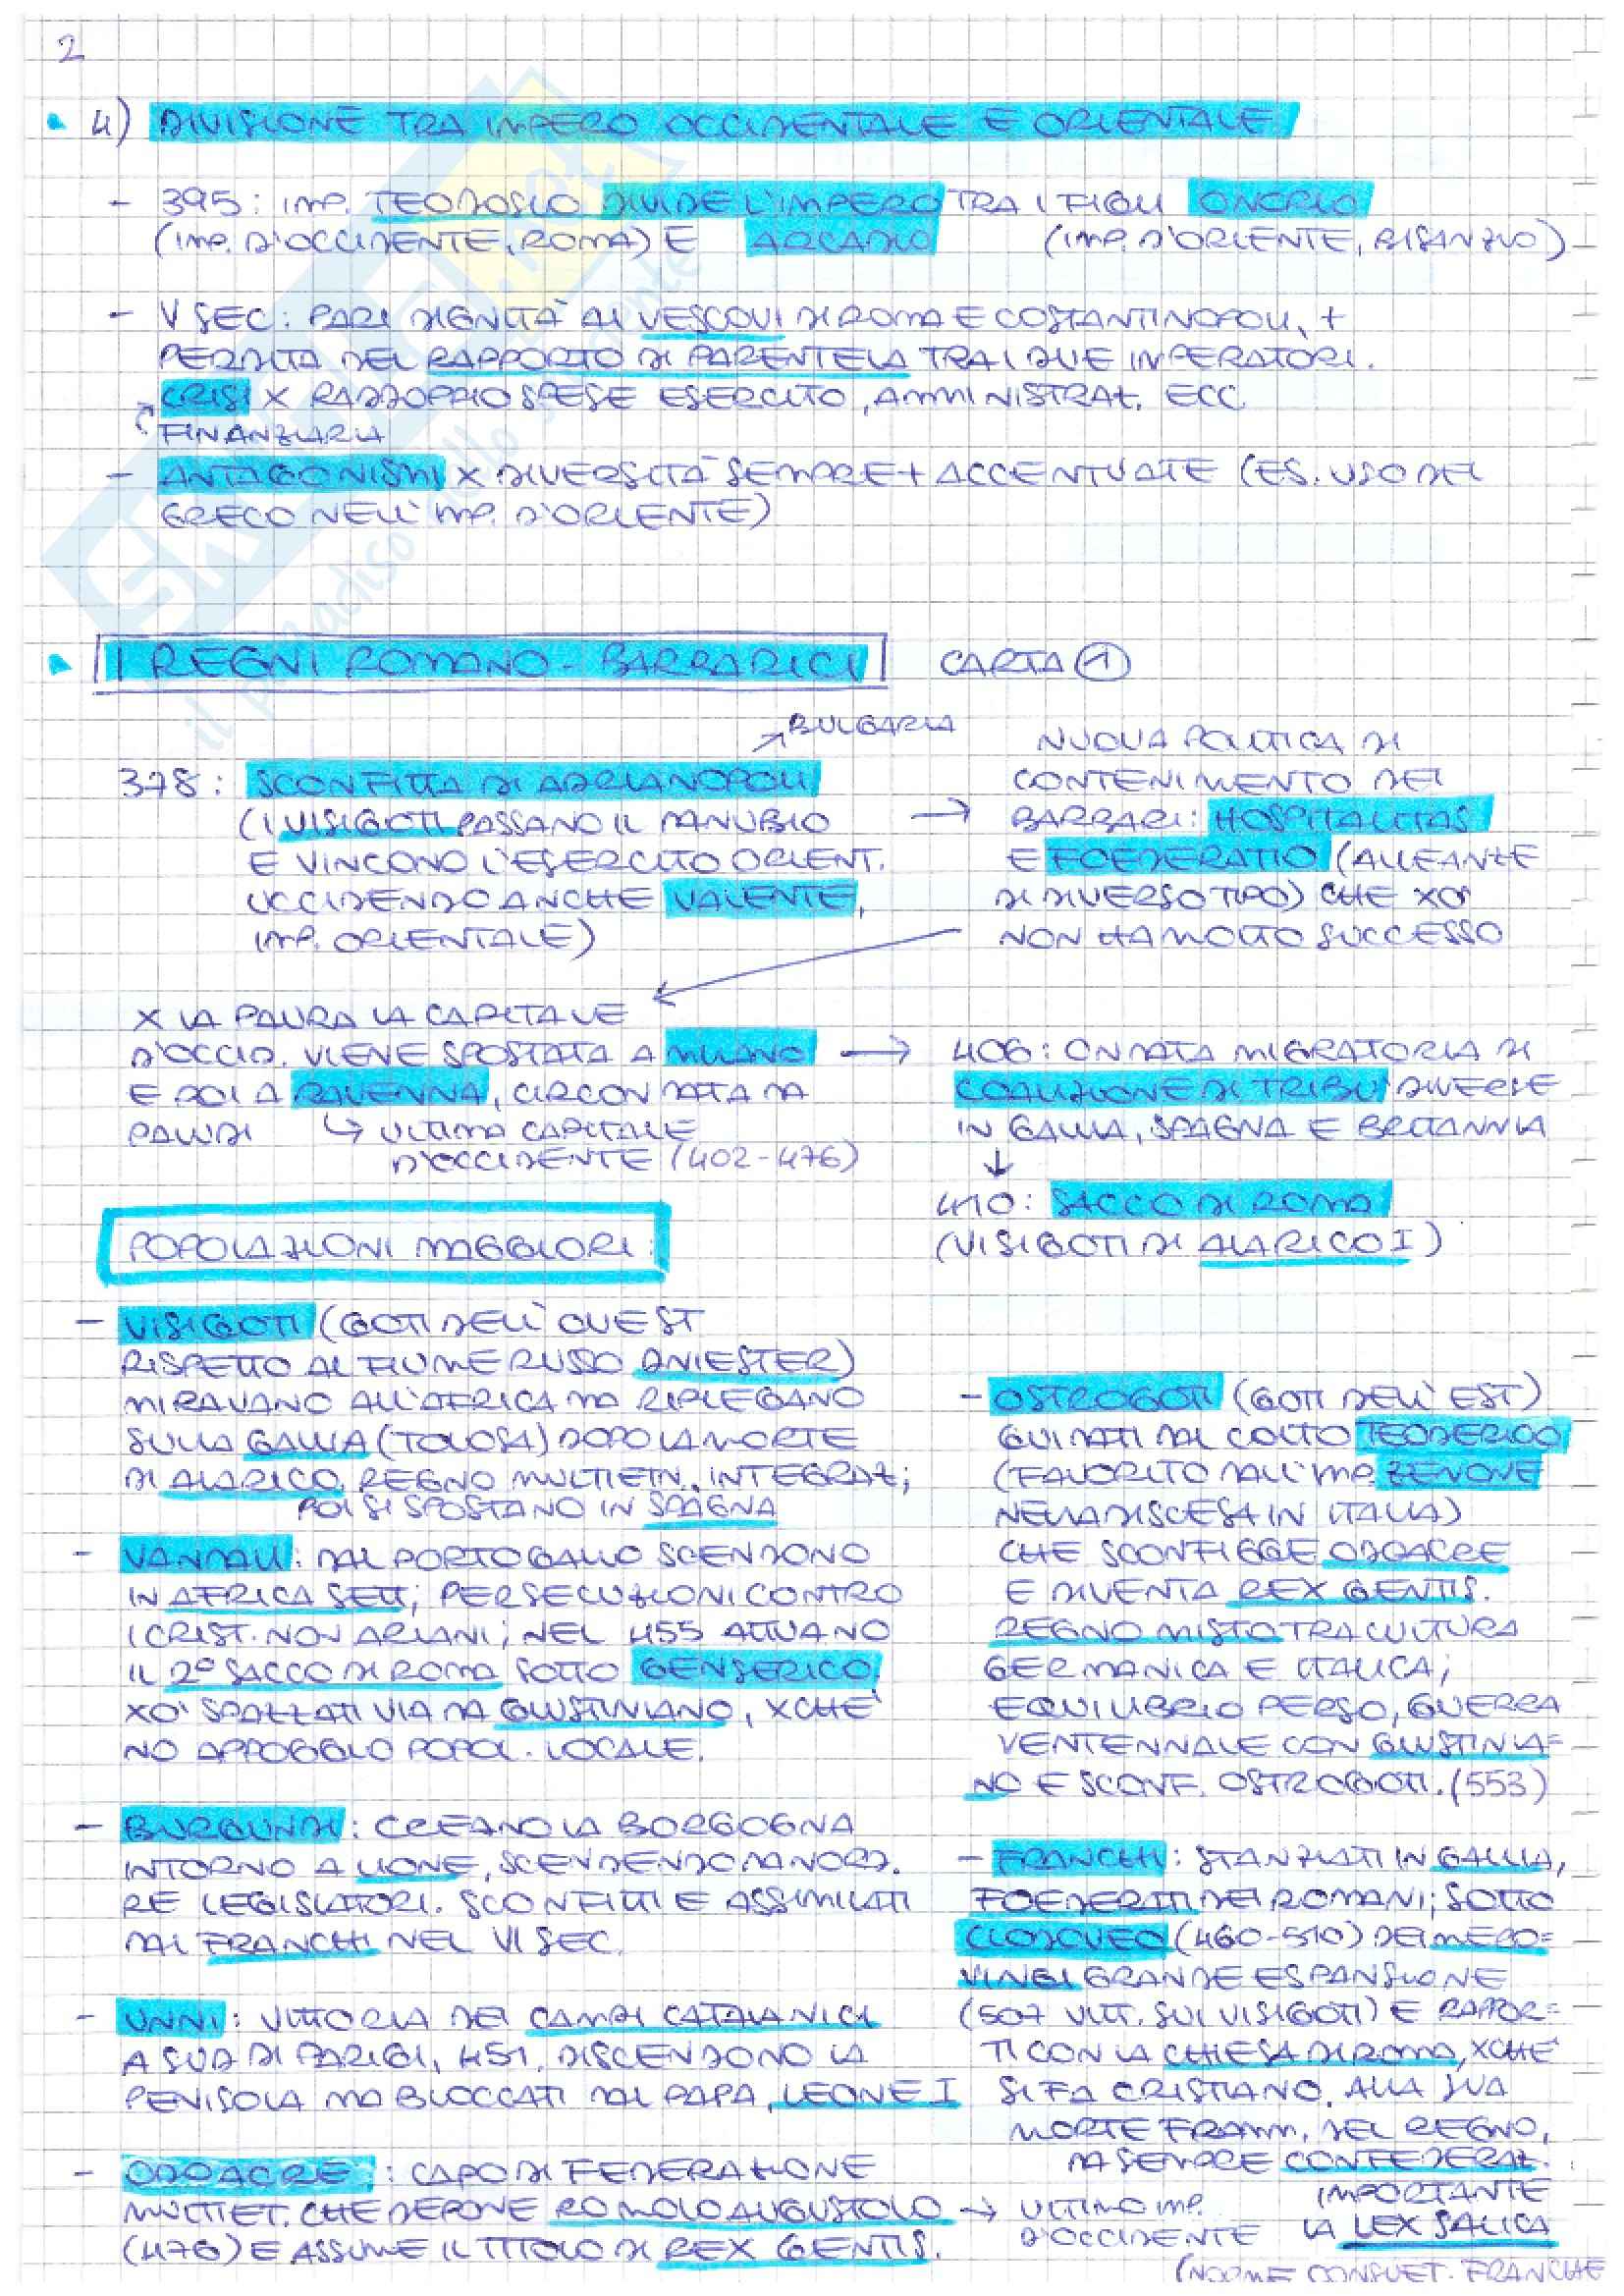 2
4) DIVISIONE TRA IMPERO OCCIDENTALE E ORIENTALE
- 395: IMP. TEODOSIO DIVIDE L'IMPERO TRA I FIGLI ONORIO
(IMP. D'OCCIDENTE, ROMA) E ARCADIO (IMP. D'ORIENTE, BISANZIO)
- V SEC: PARI DIGNITÀ AI VESCOVI DI ROMA E COSTANTINOPOLI, +
PERDITA DEL RAPPORTO DI PARENTELA TRA I DUE IMPERATORI.
CRISI X RADDOPPIO SPESE ESERCITO, AMMINISTRAZ. ECC.
FINANZIARIA
- ANTAGONISMI X DIVERSITÀ SEMPRE + ACCENTUATE (ES. USO DEL
GRECO NELL'IMP. D'ORIENTE)
I REGNI ROMANO-BARBARICI CARTA 1
BULGARIA
378: SCONFITTA DI ADRIANOPOLI
(I VISIGOTI PASSANO IL DANUBIO
E VINCONO L'ESERCITO ORIENT.
UCCIDENDO ANCHE VALENTE,
IMP. ORIENTALE)
→ NUOVA POLITICA DI
CONTENIMENTO DEI
BARBARI: HOSPITALITAS
E FOEDERATIO (ALLEANZE
DI DIVERSO TIPO) CHE XO'
NON HA MOLTO SUCCESSO
X LA PAURA LA CAPITALE
D'OCCID. VIENE SPOSTATA A MILANO →
E POI A RAVENNA, CIRCONDATA DA
PALUDI
↳ ULTIMA CAPITALE
D'OCCIDENTE (402-476)
406: ONDATA MIGRATORIA DI
COALIZIONE DI TRIBÙ DIVERSE
IN GALLIA, SPAGNA E BRITANNIA
↓
410: SACCO DI ROMA
(VISIGOTI DI ALARICO I)
POPOLAZIONI MAGGIORI:
- VISIGOTI (GOTI DELL'OVEST
RISPETTO AL FIUME RUSSO DNIESTER)
MIRAVANO ALL'AFRICA MA RIPIEGANO
SULLA GALLIA (TOLOSA) DOPO LA MORTE
DI ALARICO. REGNO MULTIETN., INTEGRAZ;
POI SI SPOSTANO IN SPAGNA
- VANDALI: DAL PORTOGALLO SCENDONO
IN AFRICA SETT; PERSECUZIONI CONTRO
I CRIST. NON ARIANI; NEL 455 ATTUANO
IL 2° SACCO DI ROMA SOTTO GENSERICO.
XO' SPAZZATI VIA DA GIUSTINIANO, XCHE'
NO APPOGGIO POPOL. LOCALE.
- BURGUNDI: CREANO LA BORGOGNA
INTORNO A LIONE, SCENDENDO DA NORD.
RE LEGISLATORI. SCONFITTI E ASSIMILATI
DAI FRANCHI NEL VI SEC.
- UNNI: VITTORIA DEI CAMPI CATALANICI
A SUD DI PARIGI, 451. DISCENDONO LA
PENISOLA MA BLOCCATI DAL PAPA, LEONE I
- ODOACRE: CAPO DI FEDERAZIONE
MULTIET. CHE DEPONE ROMOLO AUGUSTOLO → ULTIMO IMP.
D'OCCIDENTE
(476) E ASSUME IL TITOLO DI REX GENTIS.
- OSTROGOTI (GOTI DELL'EST)
GUIDATI DAL COLTO TEODERICO
(FAVORITO DALL'IMP. ZENONE
NELLA DISCESA IN ITALIA)
CHE SCONFIGGE ODOACRE
E DIVENTA REX GENTIS.
REGNO MISTO TRA CULTURA
GERMANICA E ITALICA;
EQUILIBRIO PERSO, GUERRA
VENTENNALE CON GIUSTINIA=
NO E SCONF. OSTROGOTI. (553)
- FRANCHI: STANZIATI IN GALLIA,
FOEDERATI DEI ROMANI; SOTTO
CLODOVEO (460-510) DEI MERO=
VINGI GRANDE ESPANSIONE
(507 VITT. SUI VISIGOTI) E RAPPOR=
TI CON LA CHIESA DI ROMA, XCHE'
SI FA CRISTIANO. ALLA SUA
MORTE FRAMM. DEL REGNO,
MA SEMPRE CONFEDERAZ.
IMPORTANTE
LA LEX SALICA
(NORME CONSUET. FRANCHE